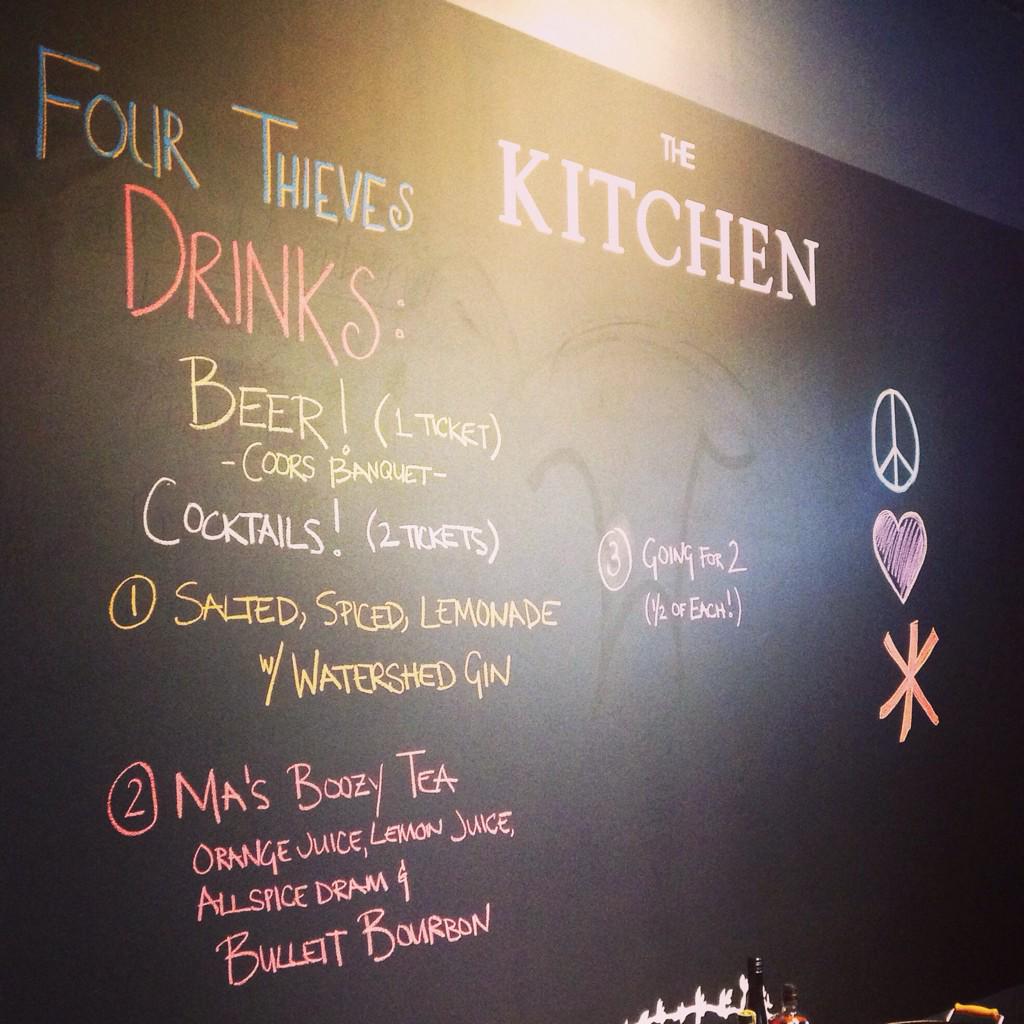 FOUR THIEVES
DRINKS:
BEER! (1 TICKET)
-COORS BANQUET-
COCKTAILS! (2 TICKETS)
1 SALTED, SPICED, LEMONADE
W/ WATERSHED GIN
2 MA'S BOOZY TEA
ORANGE JUICE, LEMON JUICE,
ALLSPICE DRAM &
BULLEIT BOURBON
THE
KITCHEN
3 GOING FOR 2
(1/2 OF EACH!)